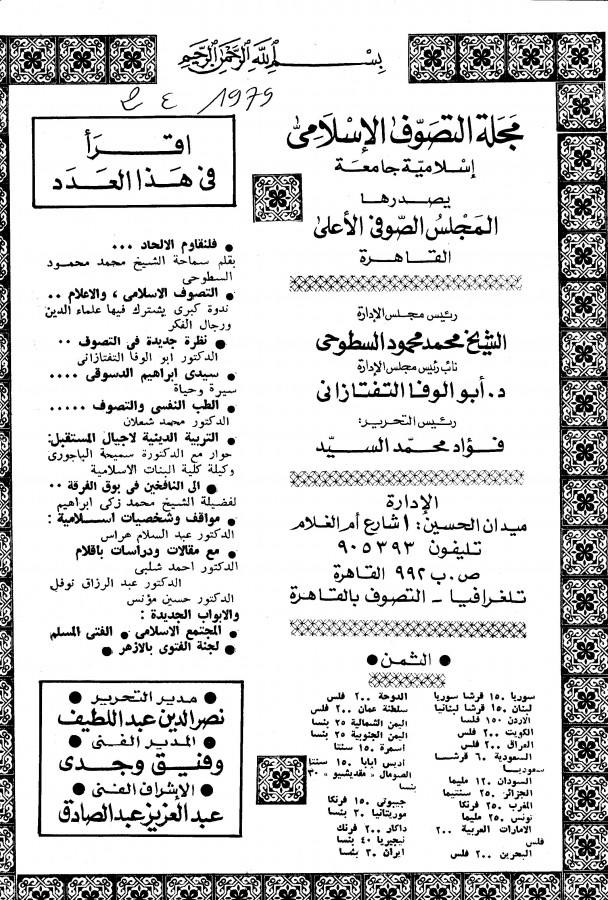 بسم الله الرحمن الرحيم
1979
مجلة التصوف الإسلامى
إسلامية جامعة
يصدرها
المجلس الصوفى الأعلى
القاهرة
رئيس مجلس الإدارة
الشيخ محمد محمود السطوحى
نائب رئيس مجلس الإدارة
د. أبو الوفا التفتازانى
رئيس التحرير:
فؤاد محمد السيد
الإدارة
ميدان الحسين: ١ شارع أم الغلام
تليفون ٩٠٥٣٩٣
ص. ب ٩٩٢ القاهرة
تلغرافيا - التصوف بالقاهرة
● الثمن ●
سوريا ١٥٠ قرشا سوريا
لبنان ١٥٠ قرشا لبنانيا
الاردن ١٥٠ فلسا
الكويت ٢٠٠ فلس
العراق ٢٠٠ فلس
السعودية ٦٠ قرشا
سعوديا
السودان ١٢٠ مليما
الجزائر ٢٥٠ سنتيما
المغرب ٢٥٠ فرنكا
تونس ٢٥٠ مليما
الامارات العربية ٢٠٠
فلس
البحرين ٢٠٠ فلس
الدوحة ٢٠٠ فلس
سلطنة عمان ٢٠٠ فلس
اليمن الشمالية ٢٥ بنسا
اليمن الجنوبية ٢٥ بنسا
اسمرة ١٥٠ سنتا
اديس ابابا ١٥٠ سنتا
الصومال « مقديشيو » ٣٠
بنسا
جيبوتى ١٥٠ فرنكا
موريتانيا ٢٠ بنسا
داكار ٢٠٠ فرنك
نيجيريا ٤٠ بنسا
ايران ٣٠ بنسا
اقرأ
فى هذا العدد
● فلنقاوم الالحاد ٠٠٠
بقلم سماحة الشيخ محمد محمود
السطوحى
● التصوف الاسلامى ، والاعلام ٠٠
ندوة كبرى يشترك فيها علماء الدين
ورجال الفكر
● نظرة جديدة فى التصوف ٠٠
الدكتور ابو الوفا التفتازانى
● سيدى ابراهيم الدسوقى ٠٠٠٠
سيرة وحياة
● الطب النفسى والتصوف ٠٠٠٠٠
الدكتور محمد شعلان
● التربية الدينية لاجيال المستقبل:
حوار مع الدكتورة سميحة الباجورى
وكيلة كلية البنات الاسلامية
● الى النافخين فى بوق الفرقة ٠٠
لفضيلة الشيخ محمد زكى ابراهيم
● مواقف وشخصيات اسلامية :
الدكتور عبد السلام هراس
● مع مقالات ودراسات باقلام
الدكتور احمد شلبى
الدكتور عبد الرزاق نوفل
الدكتور حسين مؤنس
والابواب الجديدة :
● المجتمع الاسلامى ● الفتى المسلم
● لجنة الفتوى بالازهر ●
● مدير التحرير ●
نصر الدين عبد اللطيف
● المدير الفنى ●
وفيق وجدى
● الإشراف الفنى ●
عبد العزيز عبد الصادق